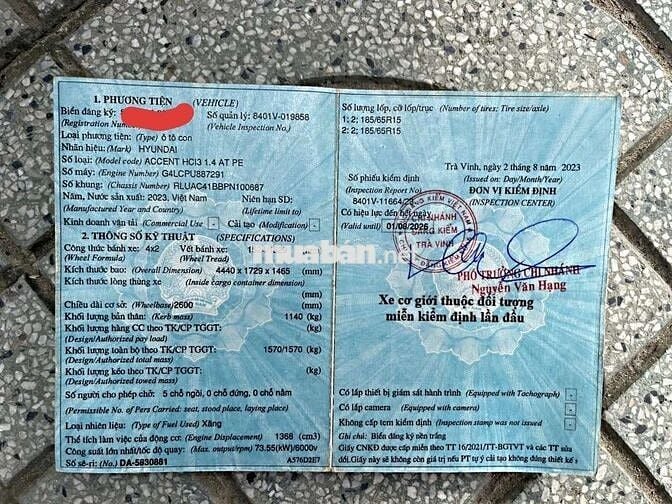 1. PHƯƠNG TIỆN (VEHICLE)
Biển đăng ký:
(Registration Num
Số quản lý: 8401V-019858
(Vehicle Inspection No.)
Loại phương tiện: (Type) ô tô con
Nhãn hiệu: (Mark) HYUNDAI
Số loại: (Model code) ACCENT HCI3 1.4 AT PE
Số máy: (Engine Number) G4LCPU887291
Số khung: (Chassis Number) RLUAC41BBPN100687
Năm, Nước sản xuất: 2023, Việt Nam
(Manufactured Year and Country)
Niên hạn SD:
(Lifetime limit to)
Kinh doanh vận tải (Commercial Use) - Cải tạo (Modification) -
2. THÔNG SỐ KỸ THUẬT (SPECIFICATIONS)
Công thức bánh xe: 4x2
(Wheel Formula)
Vết bánh xe:
(Wheel Tread)
(mm)
Kích thước bao: (Overall Dimension) 4440 x 1729 x 1465 (mm)
Kích thước lòng thùng xe (Inside cargo container dimension)
(mm)
Chiều dài cơ sở: (Wheelbase) 2600 (mm)
Khối lượng bản thân: (Kerb mass) 1140 (kg)
Khối lượng hàng CC theo TK/CP TGGT: (kg)
(Design/Authorized pay load)
Khối lượng toàn bộ theo TK/CP TGGT: 1570/1570 (kg)
(Design/Authorized total mass)
Khối lượng kéo theo TK/CP TGGT: (kg)
(Design/Authorized towed mass)
Số người cho phép chở: 5 chỗ ngồi, 0 chỗ đứng, 0 chỗ nằm
(Permissible No. of Pers Carried: seat, stood place, laying place)
Loại nhiên liệu: (Type of Fuel Used) Xăng
Thể tích làm việc của động cơ: (Engine Displacement) 1368 (cm3)
Công suất lớn nhất/tốc độ quay: (Max. output/rpm) 73.55(kW)/6000v
Số sê-ri: (No.) DA-5830881 A576D2E7
Số lượng lốp, cỡ lốp/trục (Number of tires: Tire size/axle)
1; 2; 185/65R15
2; 2; 185/65R15
Trà Vinh, ngày 2 tháng 8 năm 2023
(Issued on: Day/Month/Year)
Số phiếu kiểm định
(Inspection Report No)
8401V-11664/23
ĐƠN VỊ KIỂM ĐỊNH
(INSPECTION CENTER)
Có hiệu lực đến hết ngày
(Valid until) 01/08/2026
CHI NHÁNH
ĐĂNG KIỂM
TRÀ VINH
PHÓ TRƯỞNG CHI NHÁNH
Nguyễn Văn Hạng
Xe cơ giới thuộc đối tượng
miễn kiểm định lần đầu
Có lắp thiết bị giám sát hành trình (Equipped with Tachograph) -
Có lắp camera (Equipped with camera) -
Không cấp tem kiểm định (Inspection stamp was not issued) -
Ghi chú: Biển đăng ký nền trắng
Giấy CNKĐ được cấp miễn theo TT 16/2021/TT-BGTVT và các TT sửa
đổi.Giấy này sẽ không còn giá trị nếu PT tự ý cải tạo không đúng thiết kế
muaban.net